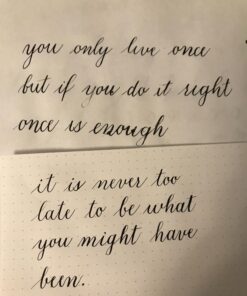 you only live once
but if you do it right
once is enough
it is never too
late to be what
you might have
been.